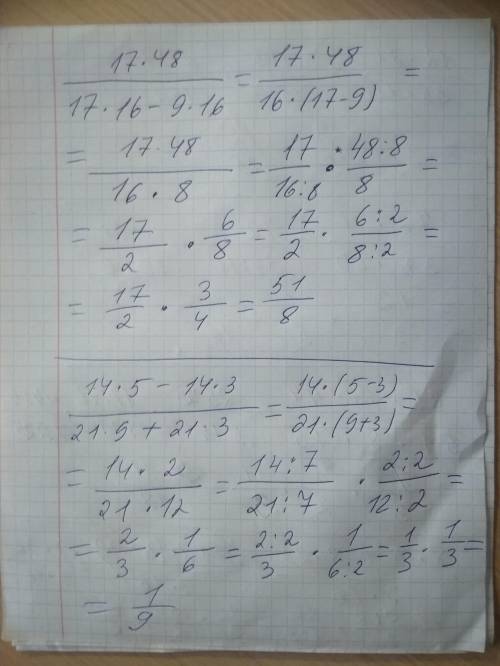 17·48 / 17·16 - 9·16 = 17·48 / 16·(17-9) =
= 17·48 / 16·8 = 17 / 16:8 · 48:8 / 8 =
= 17/2 · 6/8 = 17/2 · 6:2 / 8:2 =
= 17/2 · 3/4 = 51/8
14·5 - 14·3 / 21·9 + 21·3 = 14·(5-3) / 21·(9+3) =
= 14·2 / 21·12 = 14:7 / 21:7 · 2:2 / 12:2 =
= 2/3 · 1/6 = 2:2 / 3 · 1 / 6:2 = 1/3 · 1/3 =
= 1/9